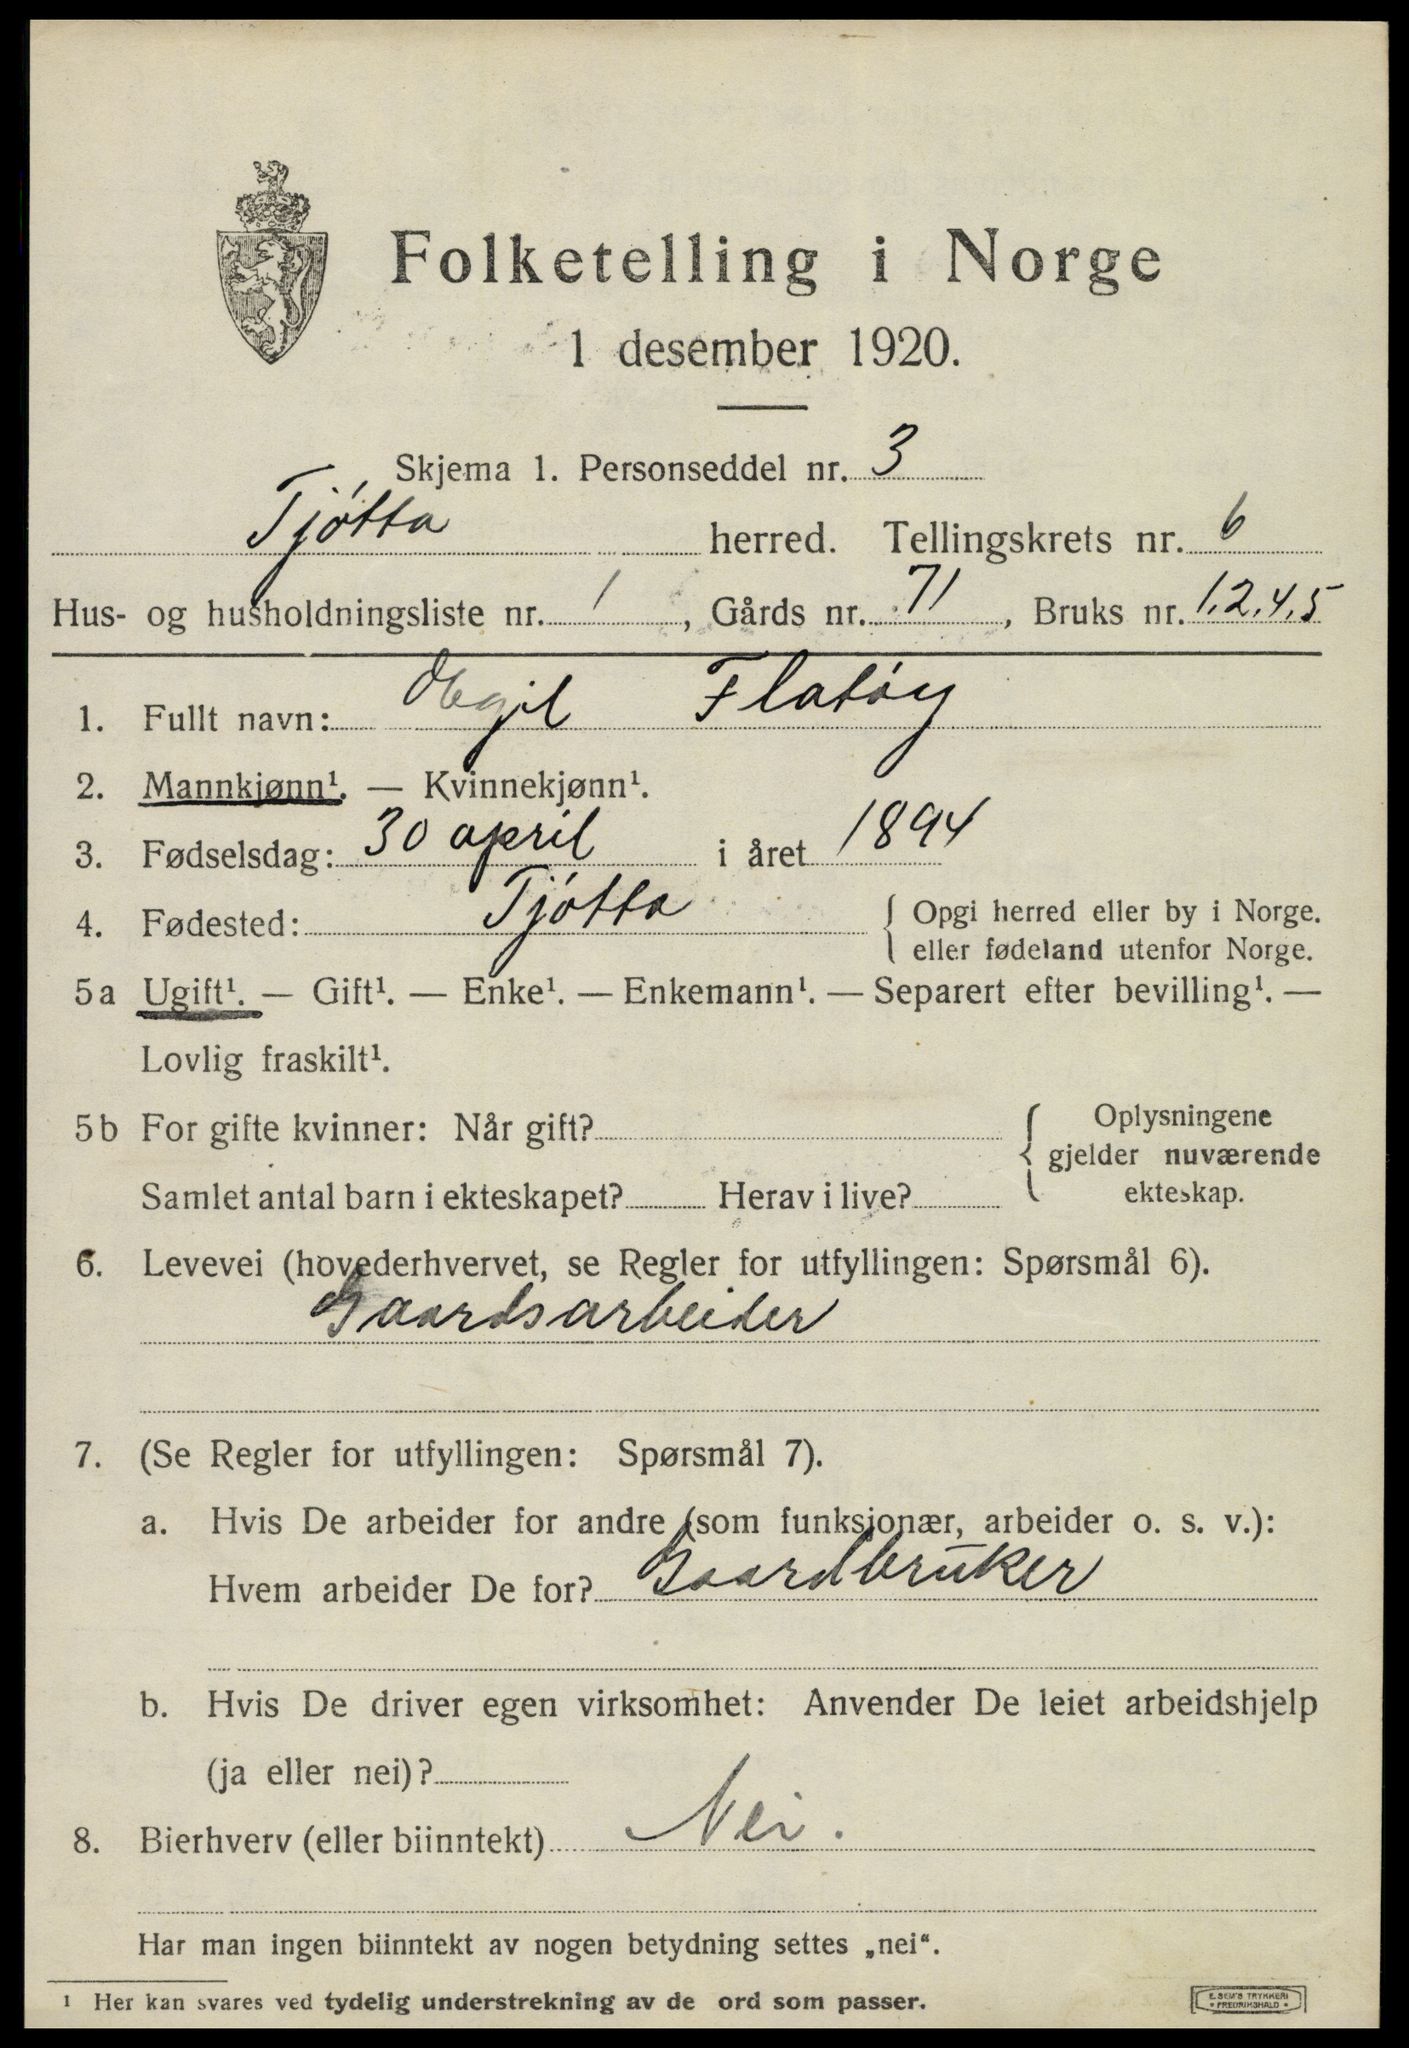 Folketelling i Norge
1 desember 1920.
Skjema 1. Personseddel nr. 3
Tjótta herred. Tellingskrets nr. 6
Hus- og husholdningsliste nr. 1, Gårds nr. 71, Bruks nr. 1.2.4.5
1. Fullt navn: Flatóy
2. Mannkjønn¹. — Kvinnekjønn¹.
3. Fødselsdag: 30 april i året 1894
4. Fødested: Tjótta { Opgi herred eller by i Norge.
eller fødeland utenfor Norge.
5a Ugift¹. — Gift¹. — Enke¹. — Enkemann¹. — Separert efter bevilling¹. —
Lovlig fraskilt¹.
5b For gifte kvinner: Når gift? { Oplysningene
gjelder nuværende
ekteskap.
Samlet antal barn i ekteskapet? Herav i live?
6. Levevei (hovederhvervet, se Regler for utfyllingen: Spørsmål 6).
Gaardsarbeider
7. (Se Regler for utfyllingen: Spørsmål 7).
a. Hvis De arbeider for andre (som funksjonær, arbeider o. s. v.):
Hvem arbeider De for? Gaardbruker
b. Hvis De driver egen virksomhet: Anvender De leiet arbeidshjelp
(ja eller nei)?
8. Bierhverv (eller biinntekt) Nei.
Har man ingen biinntekt av nogen betydning settes „nei“.
¹ Her kan svares ved tydelig understrekning av de ord som passer.
E. SEM'S TRYKKERI
* FREDRIKSHALD *